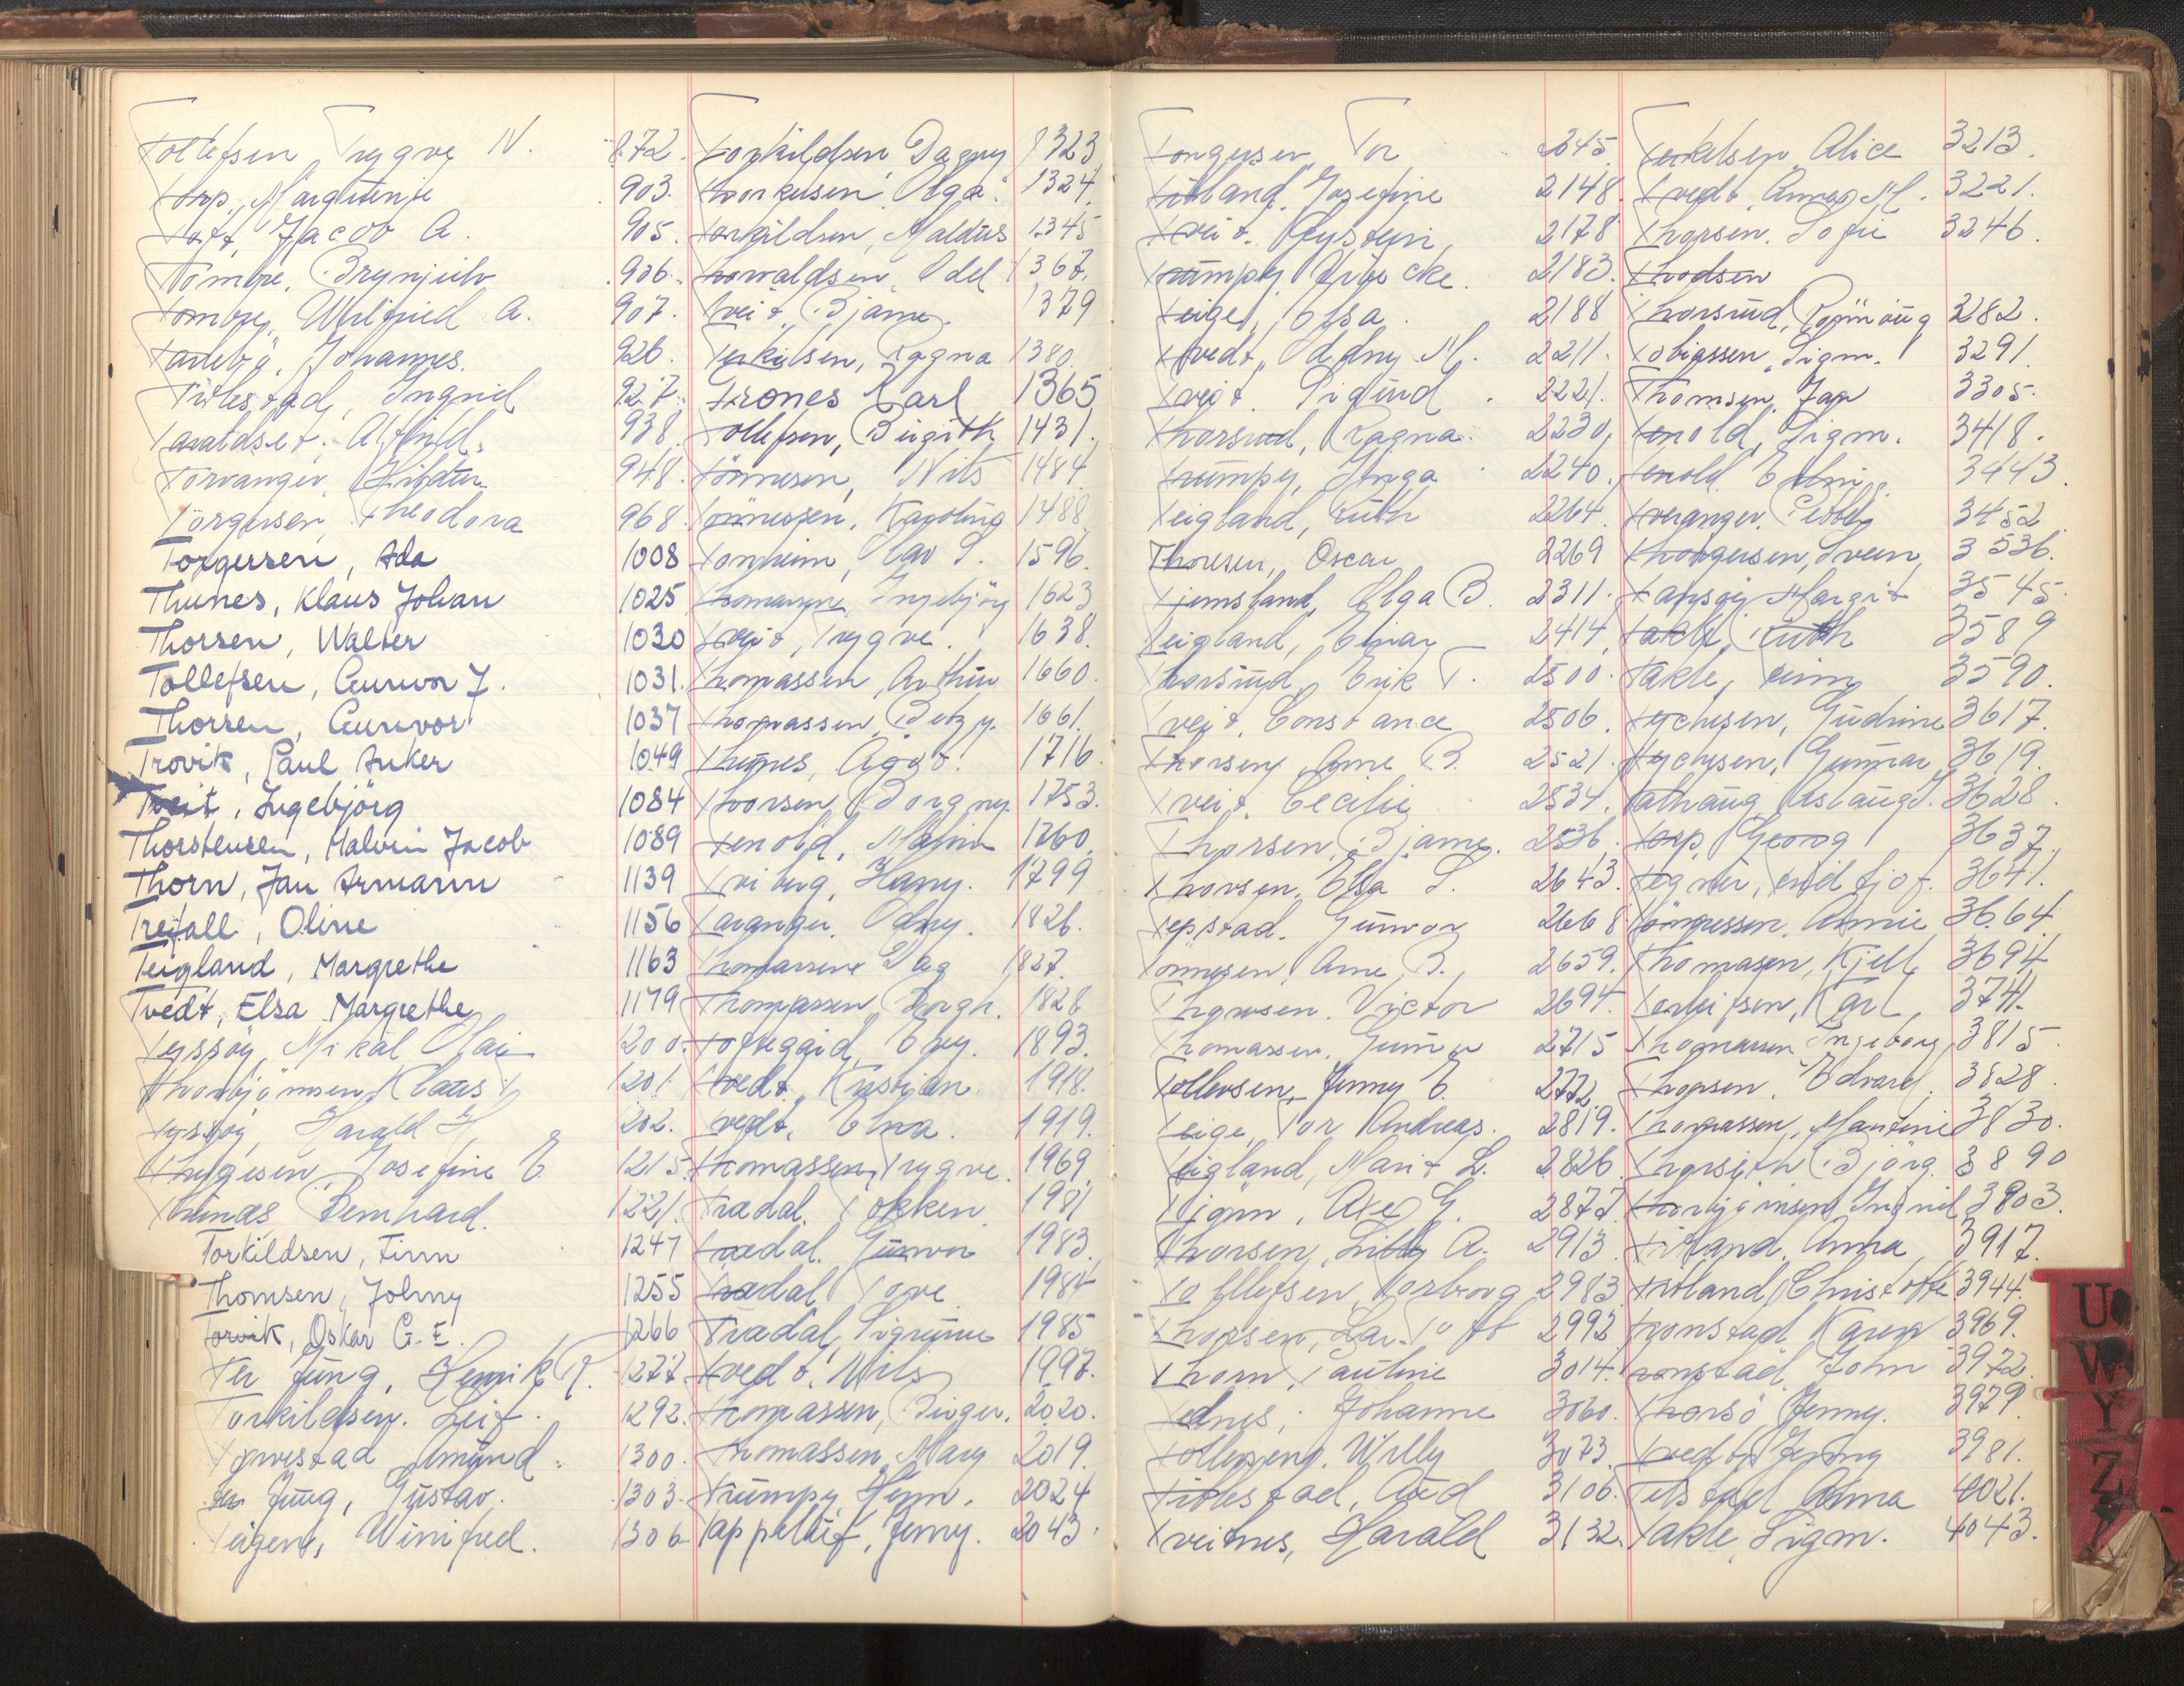 Tollefsen, Trygve N. 872.
Torp, 903.
Toft, Jacob A. 905.
Tömbre, Brynjulv 906.
Wilfried A. 907.
Johannes. 926.
Titlestad, Ingrid 927.
938.
Torvanger, 948.
Törgersen, Theodora 968.
Torgersen, Ada 1008
Thunes, Klaus Johan 1025
Thorsen, Walter 1030
Tollefsen, Gunvor J. 1031.
Thorsen, Gunvor 1037
Trovik, Paul Anker 1049
Tveit, Ingebjörg 1084
Thorstensen, Halvin Jacob 1089
Thorn, Jan Armann 1139
Trefall, Oline 1156
Teigland, Margrethe 1163
Tvedt, Elsa Margrethe 1179
Tyssøy, Mikal Olai 200.
Thorbjörnsen, Klaus 1201.
Tyssøy, Harald H. 202.
Thygesen, Josefine E. 1215.
Thunas Bernhard. 1221.
Torkildsen, Finn 1247
Thomsen, Johnny 1255
Torvik, Oskar G. E. 1266
Ter Jung, Henrik R. 1277
Torkildsen. Leif. 1292.
Amund. 1300.
ter Jung, Gustav. 1303.
Teigen, Winifred. 1306
Torkildsen, Dagny 1323
Olga. 1324
Torkildsen, 1345
Thorvaldsen, Odd 1367.
Tveit, Bjarne. 1379
Terkelsen, Ragna 1380.
Trones Karl 1365
Tollefsen, Birgith 1431.
Tönnesen, Nils 1484.
Tönnessen, 1488
Tonheim, Olav S. 1596.
Ingebjörg 1623
Tveit, Trygve. 1638.
Thomassen, Arthur 1660.
Thomassen, Betzy. 1661.
Thunes, Ågot. 1716.
Thorsen, Borgny. 1753.
Tenold, 1760.
Triberg, Harry. 1799
Taranger, Odny. 1826.
Dag 1827.
Thomassen, Borgh. 1828
Tofteggid, 1893.
Tvedt, Kristian 1918.
Tvedt, Elna. 1919.
Thomassen, Trygve 1969
Trædal, Tokken 1981
Trædal, Gunvor 1983.
Trædal, Tove 1984
Trædal, Sigrunn 1985
Tvedt, Nils 1997.
Thomassen, Birger. 2020.
Thomassen, Mary 2019.
Trumpy, Herm. 2024
Jenny. 2043.
Torgersen, Tor 2045.
Titland, Josefine 2148.
Tveit, Øystein, 2178
Trumpy, 2183.
Teige, Elsa. 2188
Tvedt, Odny M. 2211.
Tveit, Sigurd. 2221.
Thorsrud, Ragna. 2230.
Trumpy, Inga 2240.
Teigland, Ruth 2264
Thoresen, Oscar 2269
Tjemsland, Olga B. 2311.
Teigland, Einar 2414
Thorsrud, Erik T. 2500.
Tveit, Constance 2506.
Thorsen, Arne B. 2521.
Tveit, Cecilie 2534.
Thorsen, Bjarne. 2536.
Thorsen, Elsa S. 2643.
Tepstad, Gunvor 2668
Tönnesen, Arne B. 2659.
Victor 2694.
Thomassen, 2715
Tollevsen, Jenny E. 2772.
Teige, Tor Andreas. 2819.
Teigland, Marit L. 2826.
Tjönn, Axel G. 2877.
Thorsen, Lilly A. 2913.
Tollefsen, Torborg 2983
Thorsen, 2992
Thorn, Pauline 3014.
Johanne 3060.
Willy 3073.
Titlestad, Aud 3106.
Tveitnes, Harald 3132.
Terkelsen, Alice 3213.
Tvedt, Anna M. 3221.
Thorsen, Sofie 3246.
Thodsen
Thorsrud, 3282.
Tobiassen, Sigm. 3291
Thomsen, Jan 3305.
Tenold, Sigm. 3418.
Tenold, 3443.
Tveranger, 3452
Thorgersen, Svein 3536.
Margit 3545.
Takle, Ruth 3589
Takle, Finn 3590.
Tychesen, Gudrun 3617.
Tychesen, Gunnar 3619.
Aslaug 3628.
Torp, Georg 3637.
Tegner, Fridtjof. 3641.
Tönnessen, Annie 3664.
Thomasen, Kjell 3694
Terkelsen, Karl 3741.
Thomassen, Ingeborg 3815.
Thorsen, Edvard. 3828.
Thomassen, 3830.
Bjørg. 3890
Thorbjörnsen, Ingrid 3903.
Titland, Anna 3917.
Titland, 3944.
Tronstad, Karen 3969.
Tronstad, John 3972.
Thorsø Jenny. 3979.
Tvedt, Jenny 3981.
Anna 4021.
Takle, Sigm. 4043.
U
W
Y
Z